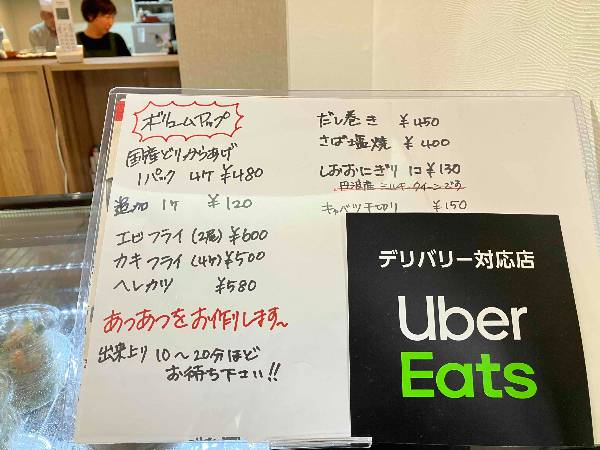 ボリュームアップ
国産どりからあげ
1パック 4ケ ¥480
追加 1ケ ¥120
エビフライ(2尾)¥600
カキフライ(4ケ)¥500
ヘレカツ ¥580
あつあつをお作りします~
出来上り 10~20分ほど
お待ち下さい!!
だし巻き ¥450
さば塩焼 ¥400
しおおにぎり 1コ ¥130
丹波産 ミルキークイーンです
キャベツ千切り ¥150
デリバリー対応店
Uber
Eats